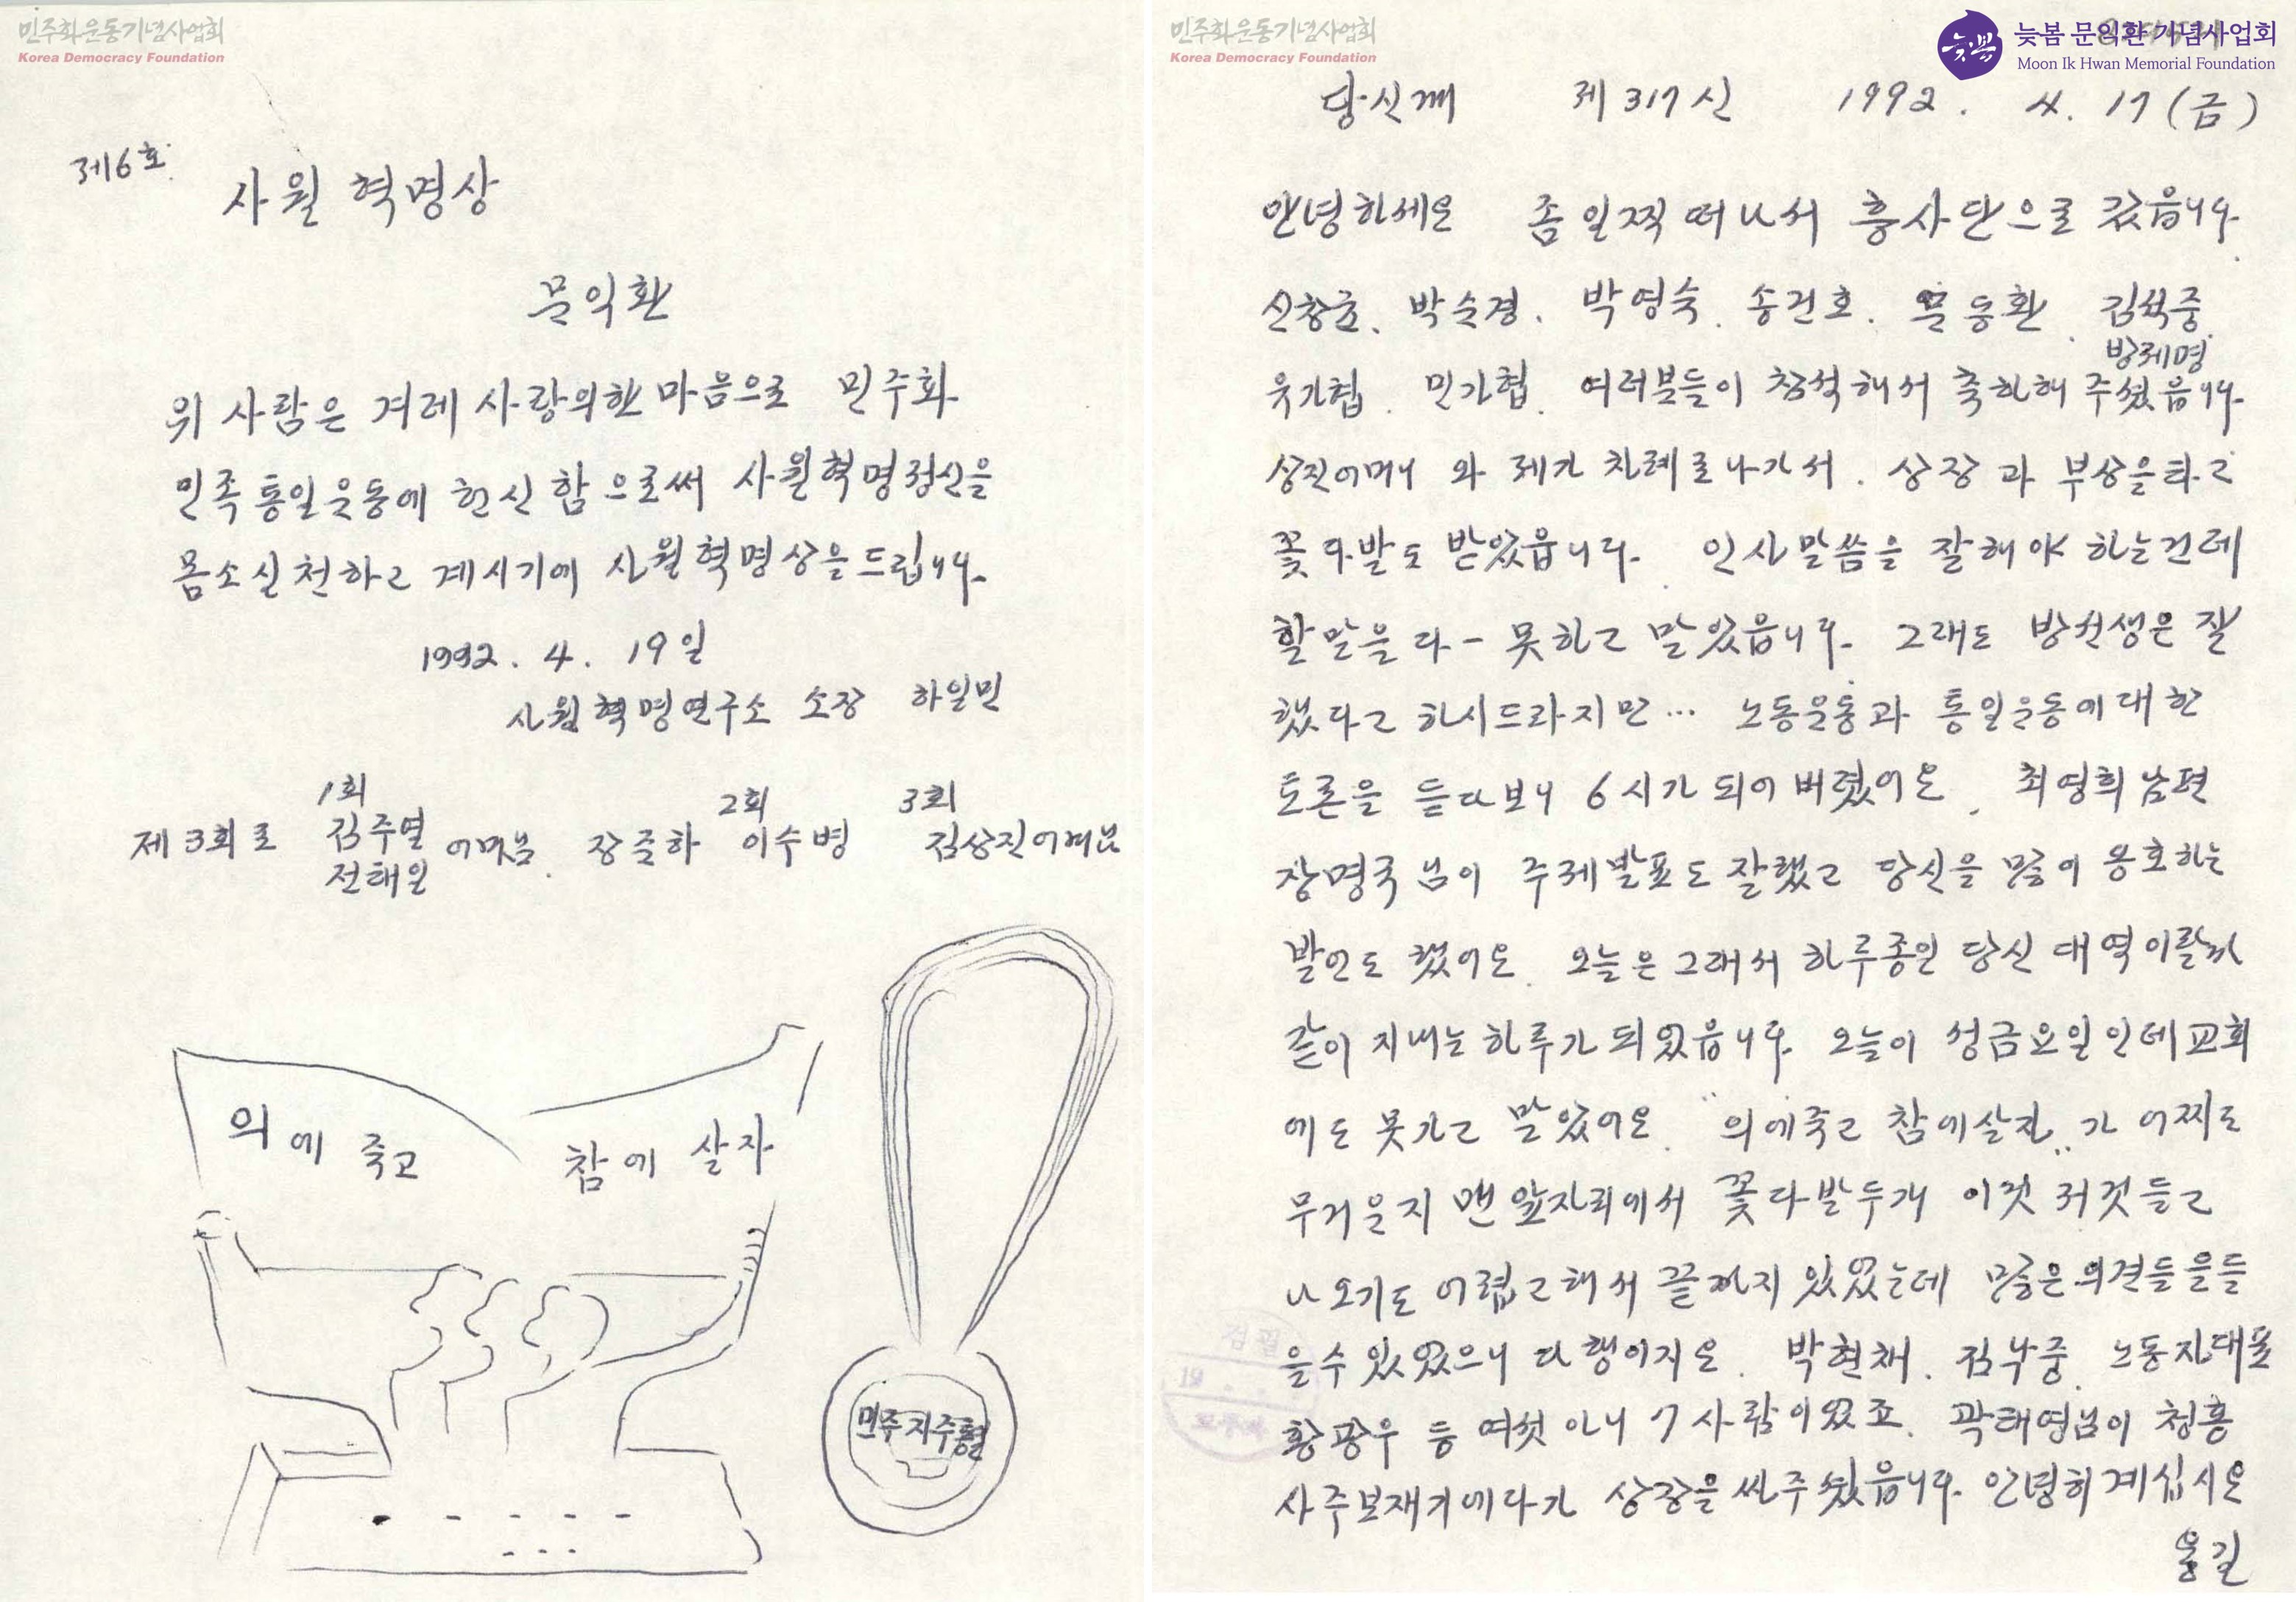 민주화운동기념사업회
Korea Democracy Foundation
제6호
사월 혁명상
문익환
위 사람은 겨레 사랑의한 마음으로 민주화
민족통일운동에 헌신 함으로써 사월혁명정신을
몸소실천하고 계시기에 사월혁명상을 드립니다.
1992. 4. 19일
사월혁명연구소 소장 하일민
1회 2회 3회
제3회로 김주열 어머님. 장준하 이수병 김상진어머님
전태일
의에 죽고 참에 살자
민주 자주 통일
민주화운동기념사업회
Korea Democracy Foundation
늦봄
늦봄 문익환 기념사업회
Moon Ik Hwan Memorial Foundation
당신께 제317신 1992. 4. 17 (금)
안녕하세요 좀 일찍 떠나서 흥사단으로 갔읍니다.
신창균, 박순경, 박영숙, 송건호, 문동환, 김석중,
방제명
유가협, 민가협, 여러분들이 참석해서 축하해 주셨읍니다.
상진어머니 와 제가 차례로나가서, 상장 과 부상을 타고
꽃다발도 받았읍니다. 인사말씀을 잘해야 하는건데
할말을 다- 못하고 말았읍니다. 그래도 방선생은 잘
했다고 하시드라지만… 노동운동과 통일운동에대한
토론을 듣다보니 6시가 되어 버렸어요. 최영희 남편
장명국 님이 주제발표도 잘했고 당신을 많이 옹호하는
발언도 했어요. 오늘은 그래서 하루종일 당신 대역이랄까
같이 지내는 하루가 되었읍니다. 오늘이 성금요일인데 교회
에도 못가고 말았어요. "의에죽고 참에살자"가 어찌도
무거운지 맨 앞자리에서 꽃다발두개 이것 저것들고
나오기도 어렵고해서 끝까지 있었는데 많은 의견들을들
을수 있었으니 다행이지요. 박현채, 김낙중, 노동자대표
황광우 등 여섯 아니 7사람이었죠. 곽태영님이 청홍
사주보재기에다가 상장을 싸주셨읍니다. 안녕히 계십시오
용길